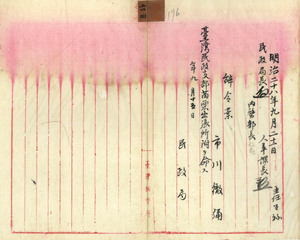 196
明治二十八年九月二十二日
主任
民政局長
人事課長
内務部長
辞令案
市川徽彌
臺灣民政支部苗栗出張所附ヲ命ス
年九月十五日
民政局